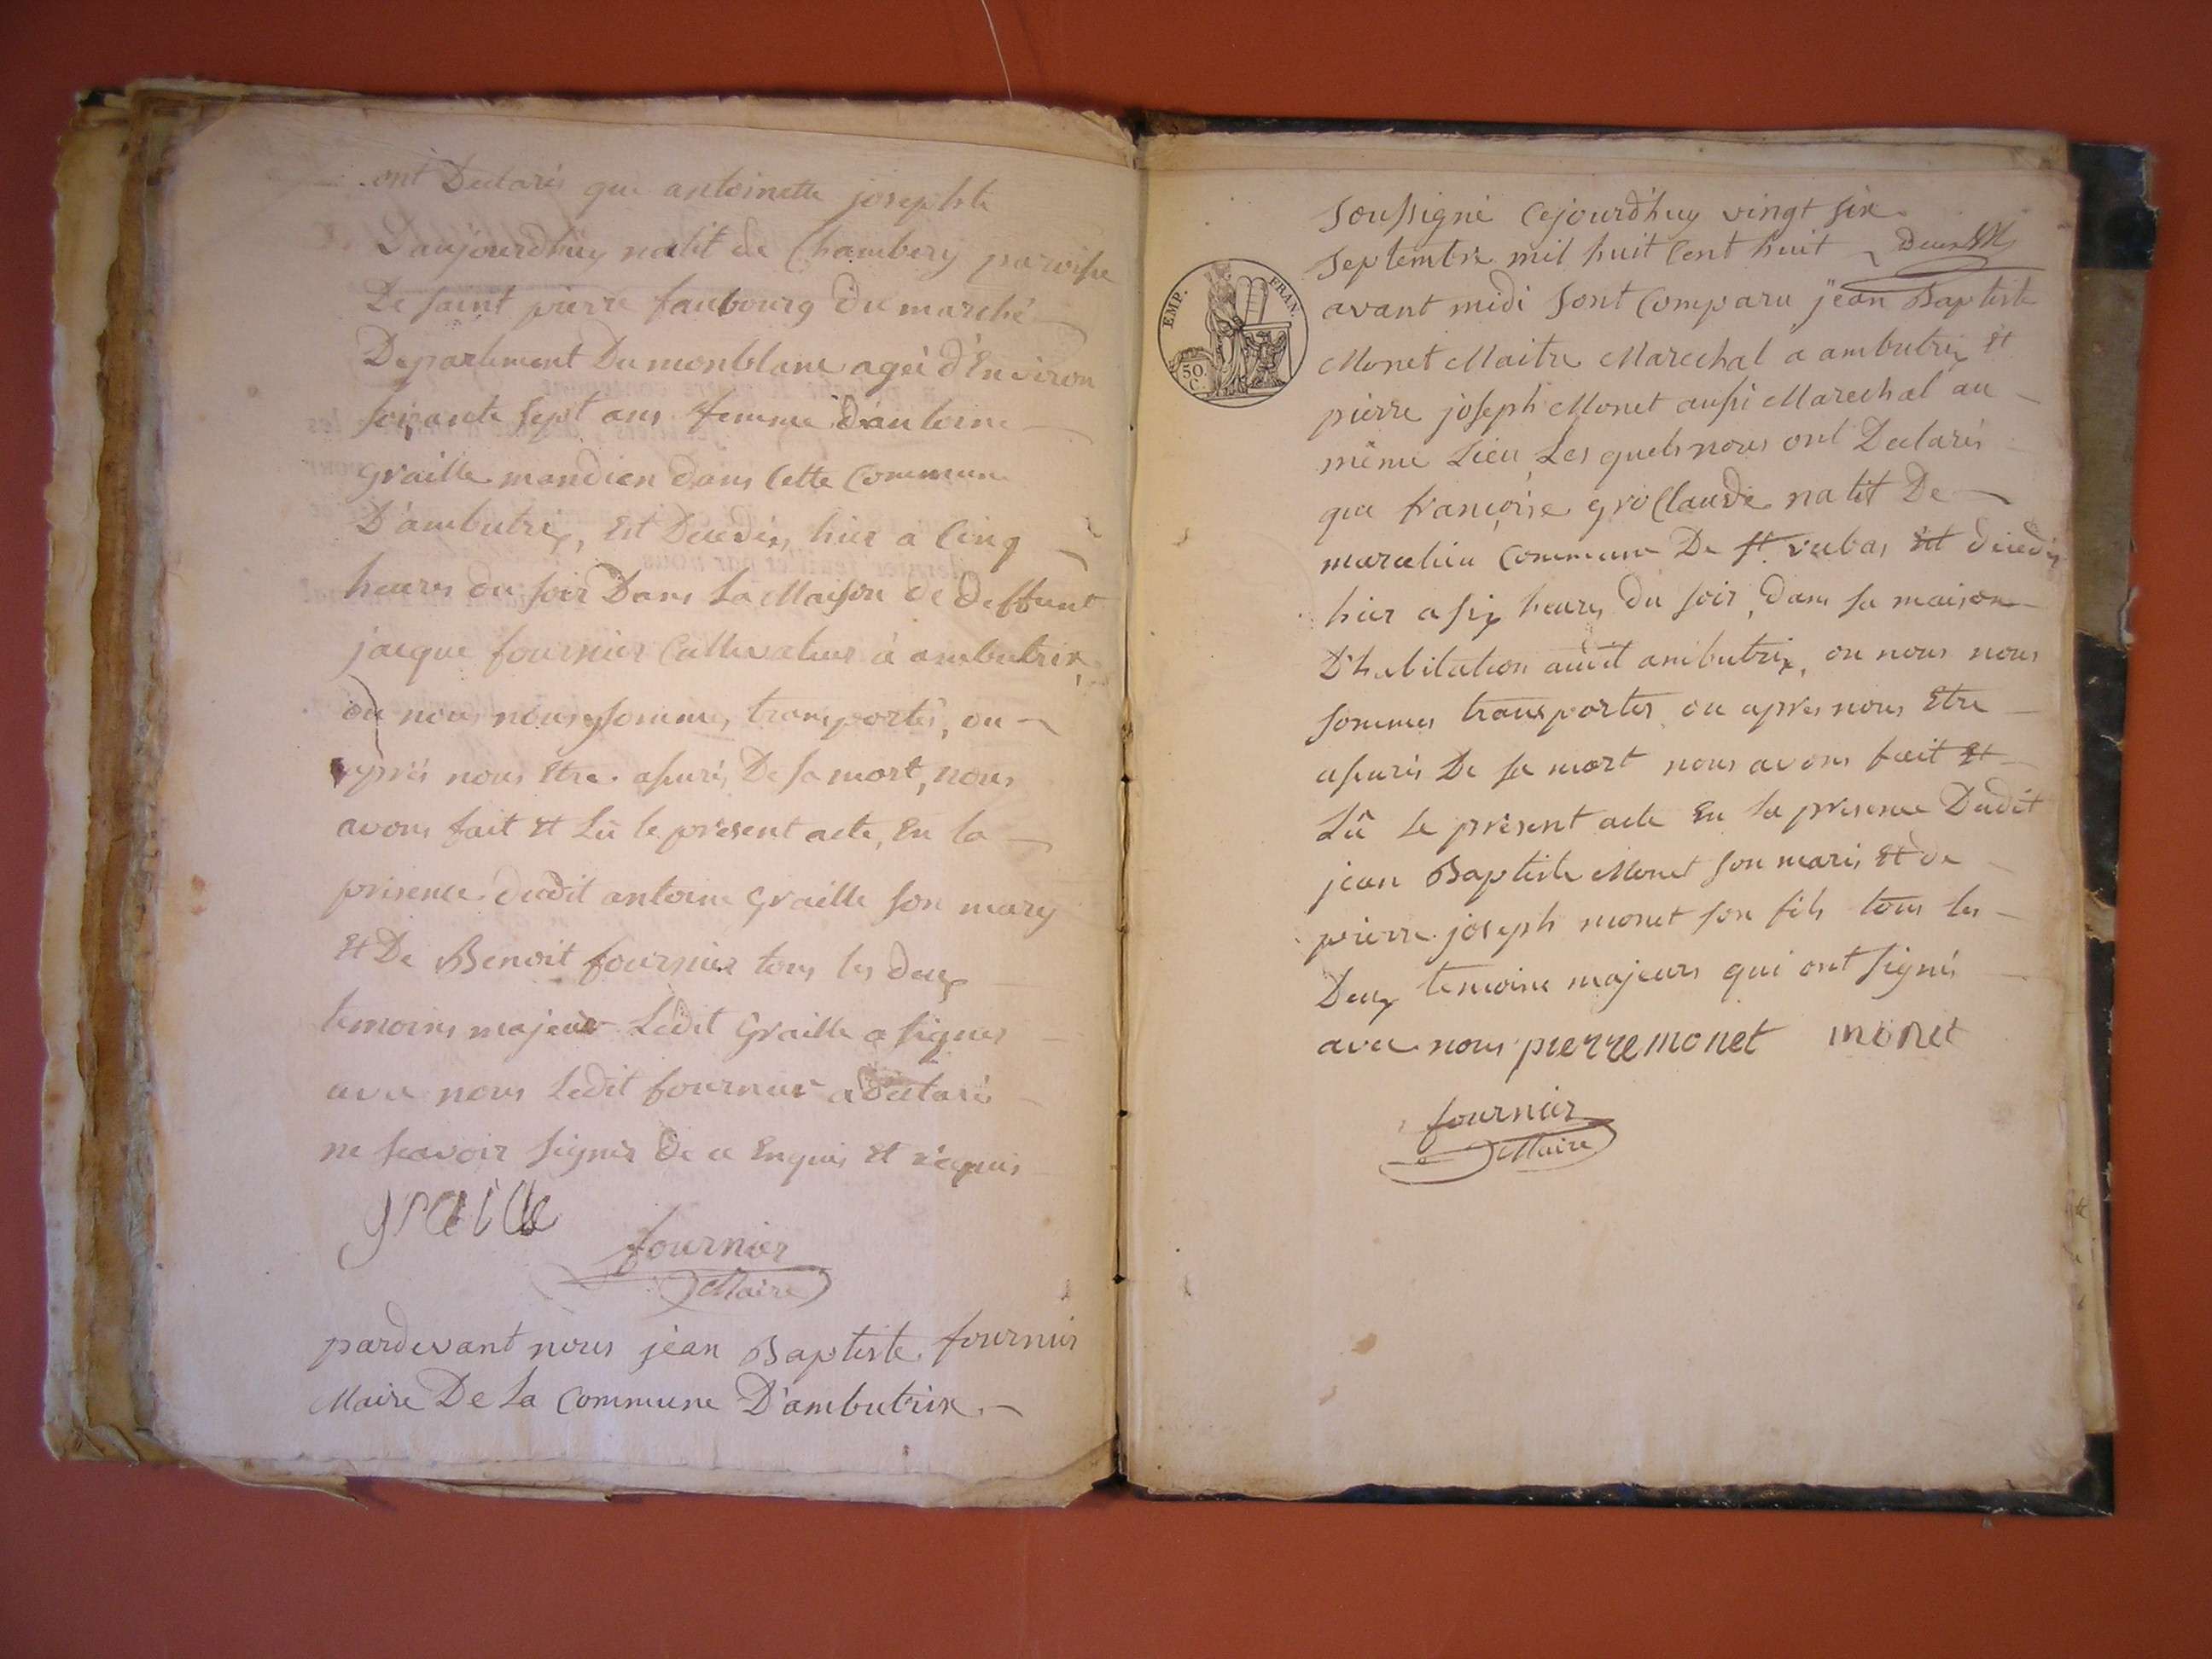 ont Declarés que antoinette josephte
Daujourdhuy natit de Chambery paroisse
De saint pierre faubourg du marché
Departement Du monblanc ageé d'Environ
soixante sept ans femme d'antoine
graille mandien dans Cette Commune
D'ambutrix, Est Decedéz, hier a Cinq
heures du soir Dans La Maison de deffunt
jacque fournier Cultivateur à ambutrix,
ou nous nous sommes, transportés, ou
après nous Etre asurés De sa mort, nous
avons fait Et Lû le présent acte, En la
présence dudit antoine graille son mary
Et De Benoit fournier tous les deux
temoins majeur Ledit graille a signer
avec nous Ledit fournier a declaré
ne scavoir signer de ce Enquis Et réquis
graille
fournier
Maire
pardevant nous jéan Baptiste fournier
Maire De La Commune D'ambutrix
soussigné Cejourdhuy vingt six
septembre mil huit Cent huit
avant midi sont Comparu jéan Baptiste
Monet Maitre Marechal a ambutrix Et
pierre joseph Monet aussi Marechal au
même Lieu Les quels nous ont Declarés
que françoise groClaude natit De
marcelieu Commune De st vulbas Est décedéz
hier a six heures du soir, dans sa maison
D'habitation audit ambutrix, ou nous nous
sommes transportés ou après nous Etre
asurés De sa mort nous avons fait Et
Lû Le présent acte En la présence Dudit
jean Baptiste Monet son maris Et de
pierre joseph monet son fils tous les
Deux temoins majeurs qui ont signés
avec nous pierre monet monet
fournier
Maire
EMP. FRAN.
50.
C.